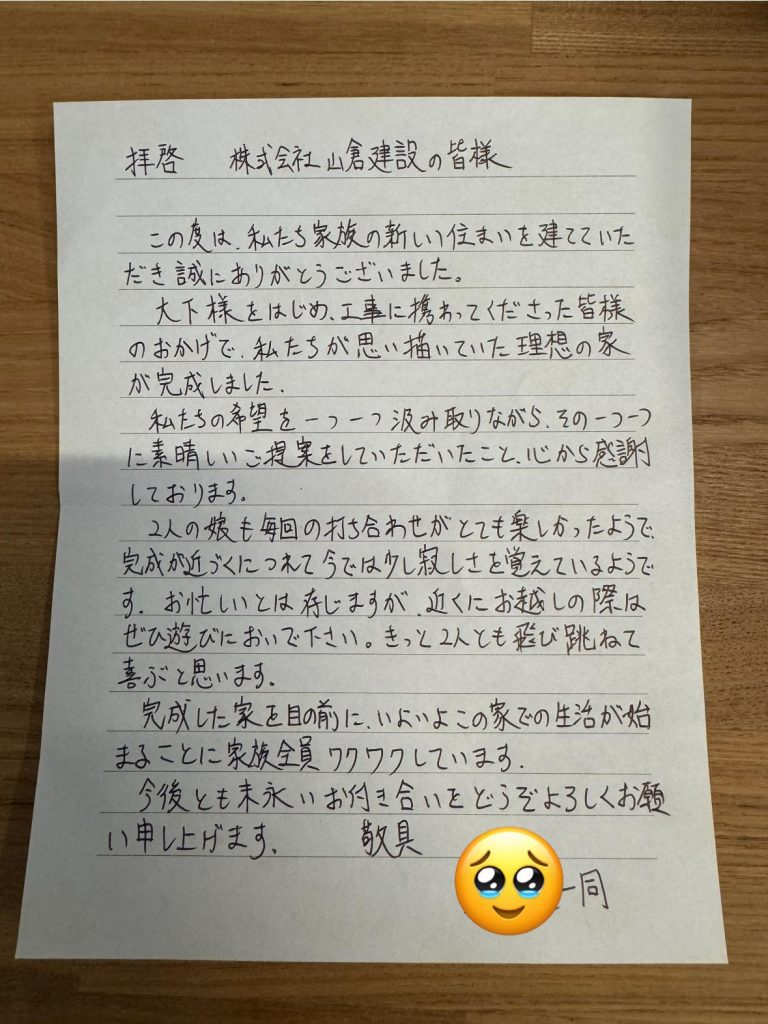 拝啓　株式会社山倉建設の皆様
この度は、私たち家族の新しい住まいを建てていた
だき誠にありがとうございました。
大下様をはじめ、工事に携わってくださった皆様
のおかげで、私たちが思い描いていた理想の家
が完成しました。
私たちの希望を一つ一つ汲み取りながら、その一つ一つ
に素晴しいご提案をしていただいたこと、心から感謝
しております。
2人の娘も毎回の打ち合わせがとても楽しかったようで、
完成が近づくにつれて今では少し寂しさを覚えているようで
す。お忙しいとは存じますが、近くにお越しの際は
ぜひ遊びにおいで下さい。きっと2人とも飛び跳ねて
喜ぶと思います。
完成した家を目の前に、いよいよこの家での生活が始
まることに家族全員ワクワクしています。
今後とも末永いお付き合いをどうぞよろしくお願
い申し上げます。　敬具
一同